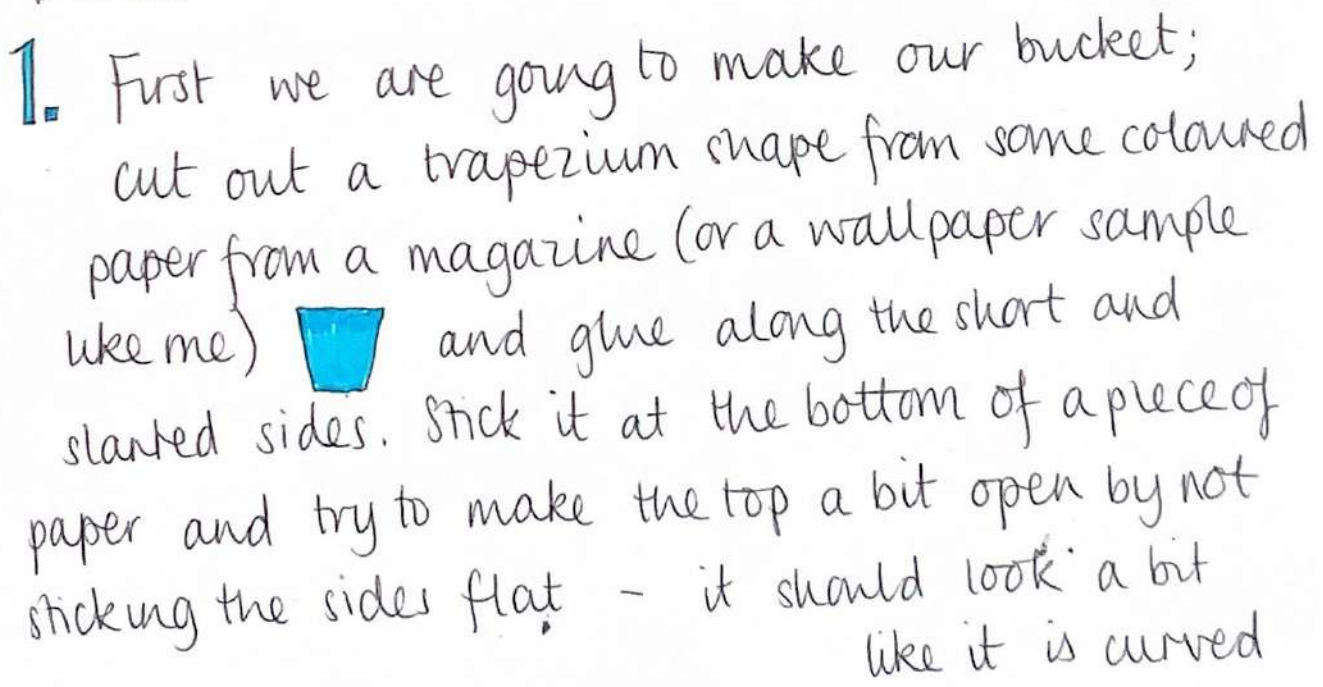 1. First we are going to make our bucket;
cut out a trapezium shape from some coloured
paper from a magazine (or a wallpaper sample
like me) and glue along the short and
slanted sides. Stick it at the bottom of a piece of
paper and try to make the top a bit open by not
sticking the sides flat - it should look a bit
like it is curved